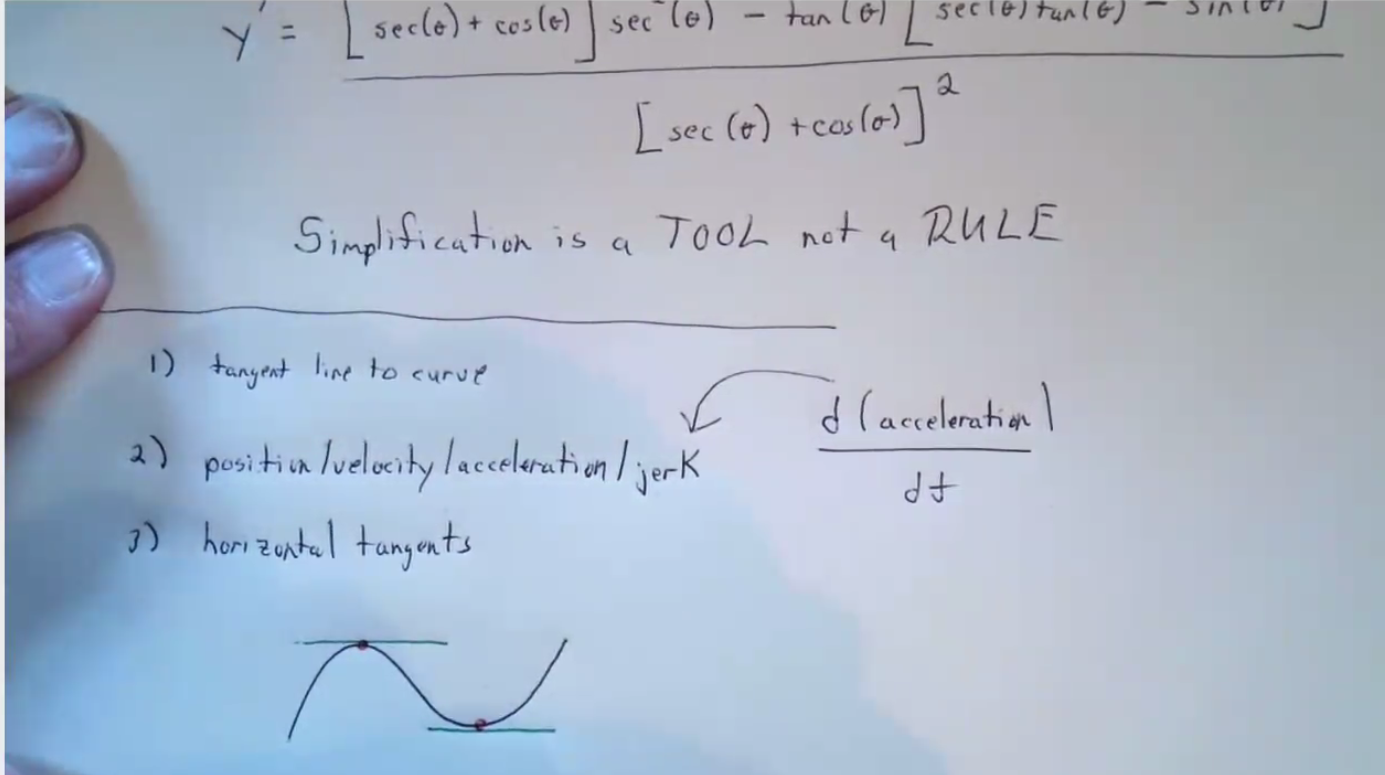 y' = [sec(θ) + cos(θ)] sec²(θ) - tan(θ) [sec(θ)tan(θ) - sin(θ)]
[sec(θ) + cos(θ)]²
Simplification is a TOOL not a RULE
1) tangent line to curve
d(acceleration)
2) position/velocity/acceleration/jerk
dt
3) horizontal tangents